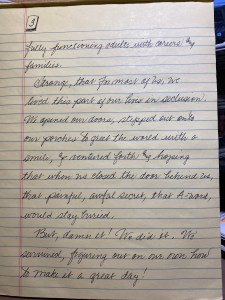 3
fully functioning adults with careers &
families.
Strange, that for most of us, we
lived this part of our lives in seclusion.
We opened our doors, stepped out onto
our porches to greet the world with a
smile, & ventured forth & hoping
that when we closed the door behind us,
that painful, awful secret, that A-word,
would stay buried.
But, damn it! We did it. We
survived, figuring out on our own how
to make it a great day!